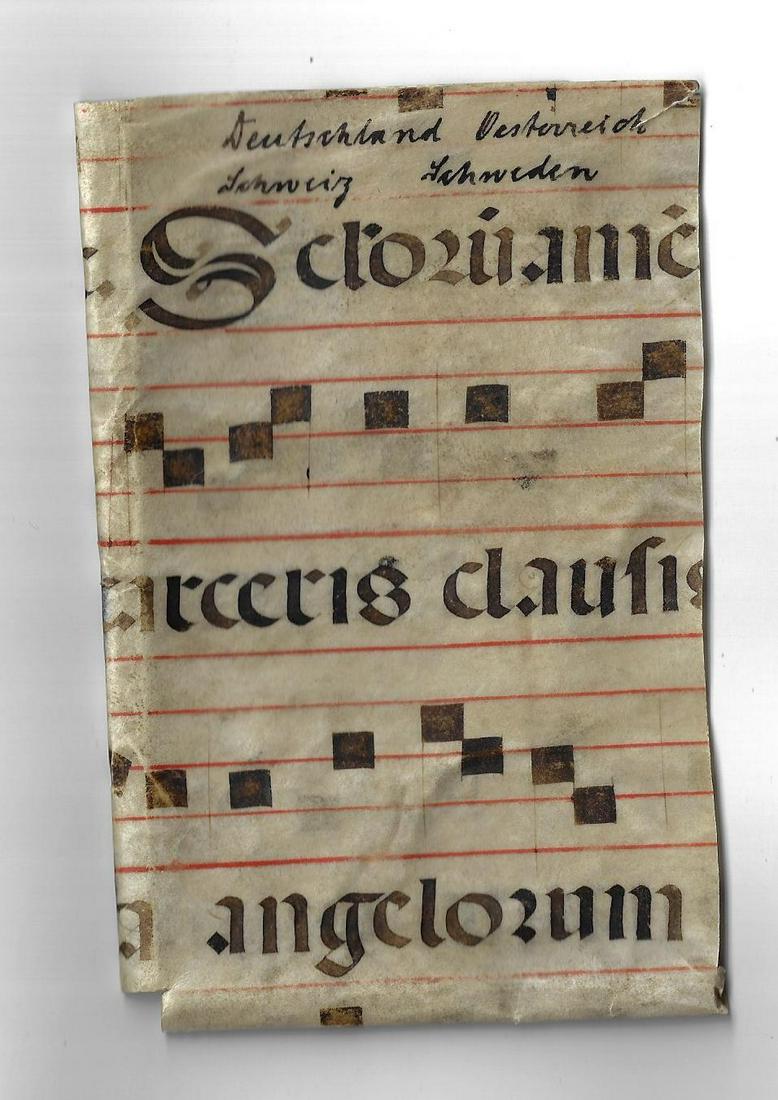 Deutschland Oesterreich
Schweiz Schweden
Sctorū
arceris clausis
a angelorum